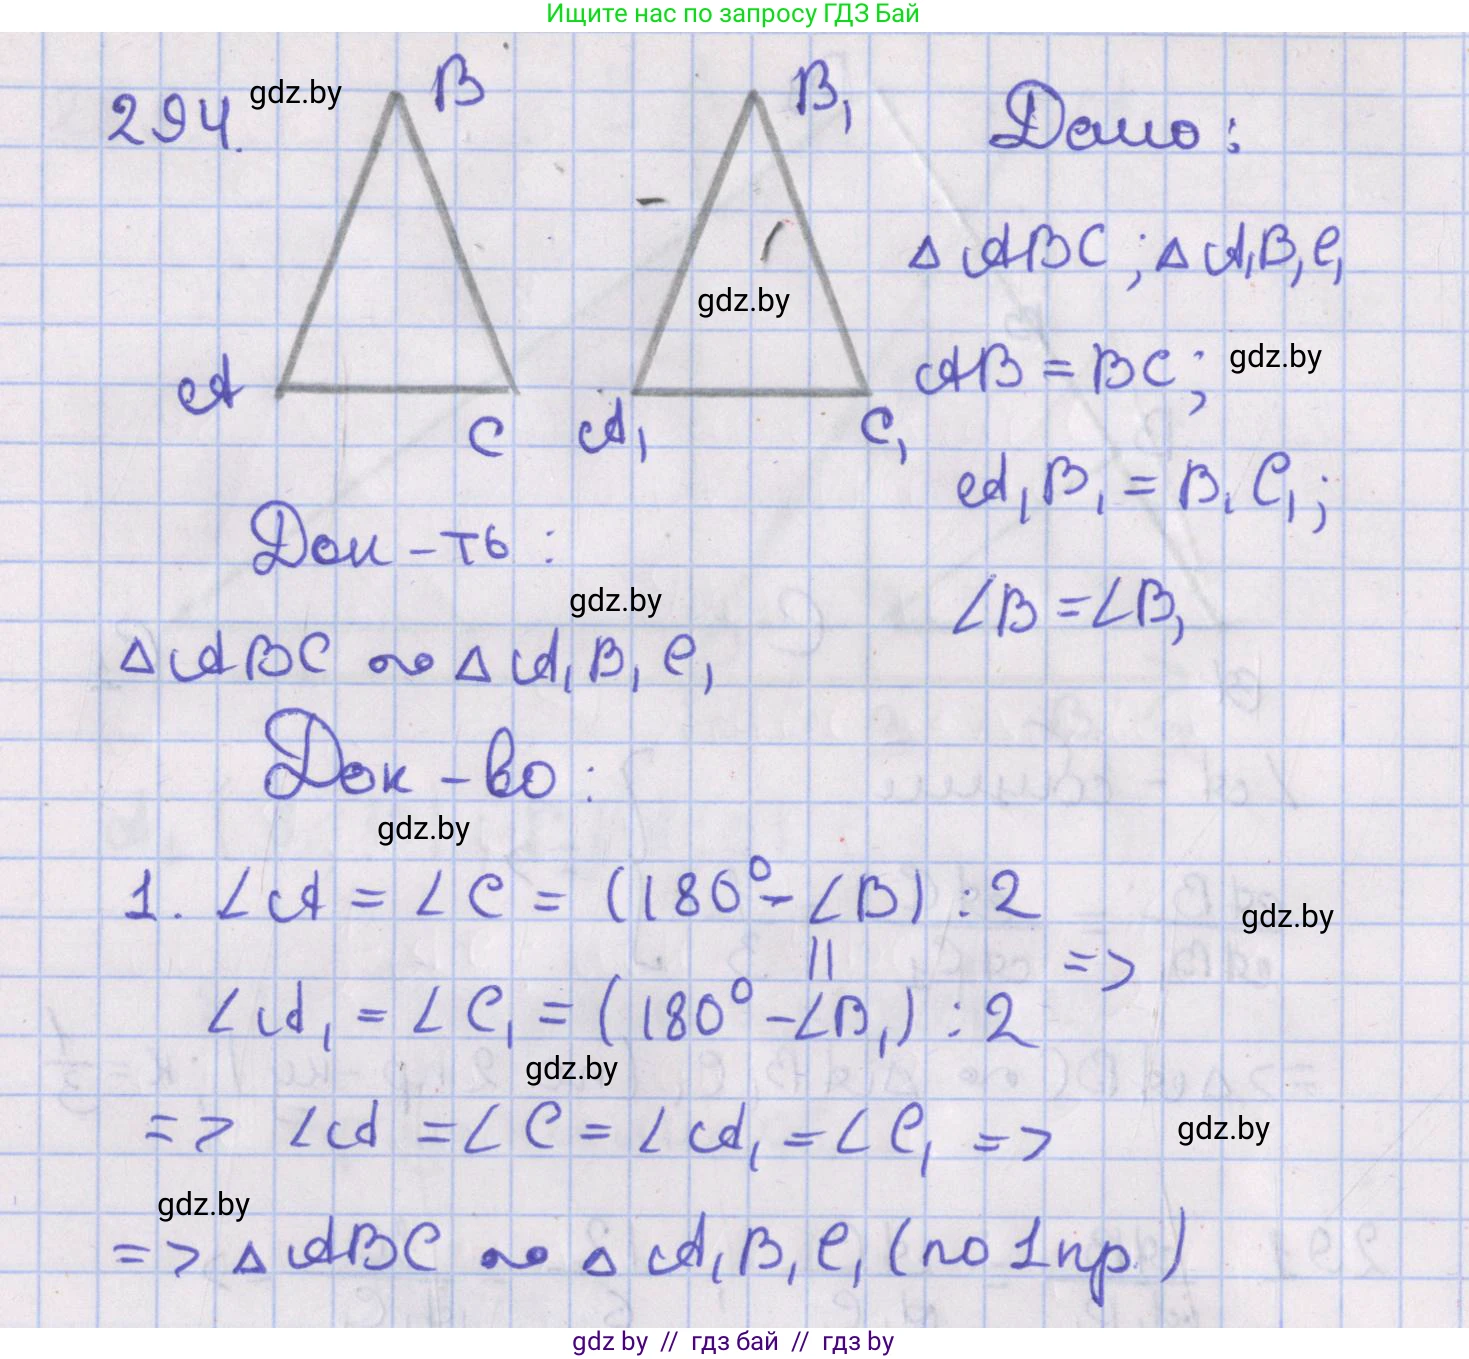 Ищите нас по запросу ГДЗ Бай
294. gdz.by B B₁ Дано:
gdz.by △ABC; △A₁B₁C₁
A C A₁ C₁ AB = BC; gdz.by
A₁B₁ = B₁C₁;
Док-ть:
gdz.by ∠B = ∠B₁
△ABC ∾ △A₁B₁C₁
Док-во:
gdz.by
1. ∠A = ∠C = (180° - ∠B) : 2
gdz.by
|| =>
∠A₁ = ∠C₁ = (180° - ∠B₁) : 2
gdz.by
=> ∠A = ∠C = ∠A₁ = ∠C₁ =>
gdz.by
gdz.by
=> △ABC ∾ △A₁B₁C₁ (по 1 пр.)
gdz by // гдз бай // гдз by